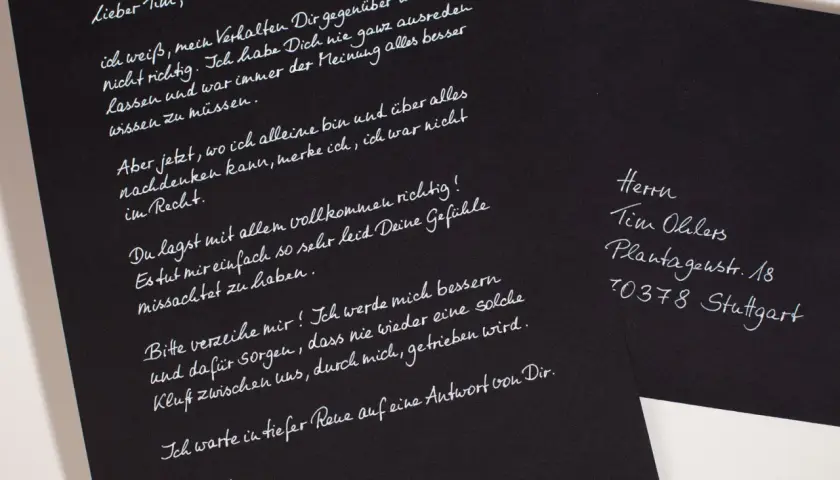 Lieber Tim,
ich weiß, mein Verhalten Dir gegenüber
nicht richtig. Ich habe Dich nie ganz ausreden
lassen und war immer der Meinung alles besser
wissen zu müssen.
Aber jetzt, wo ich alleine bin und über alles
nachdenken kann, merke ich, ich war nicht
im Recht.
Du lagst mit allem vollkommen richtig!
Es tut mir einfach so sehr leid Deine Gefühle
missachtet zu haben.
Bitte verzeihe mir! Ich werde mich bessern
und dafür sorgen, dass nie wieder eine solche
Kluft zwischen uns, durch mich, getrieben wird.
Ich warte in tiefer Reue auf eine Antwort von Dir.
Herrn
Tim Ohlers
Plantagenstr. 18
70378 Stuttgart